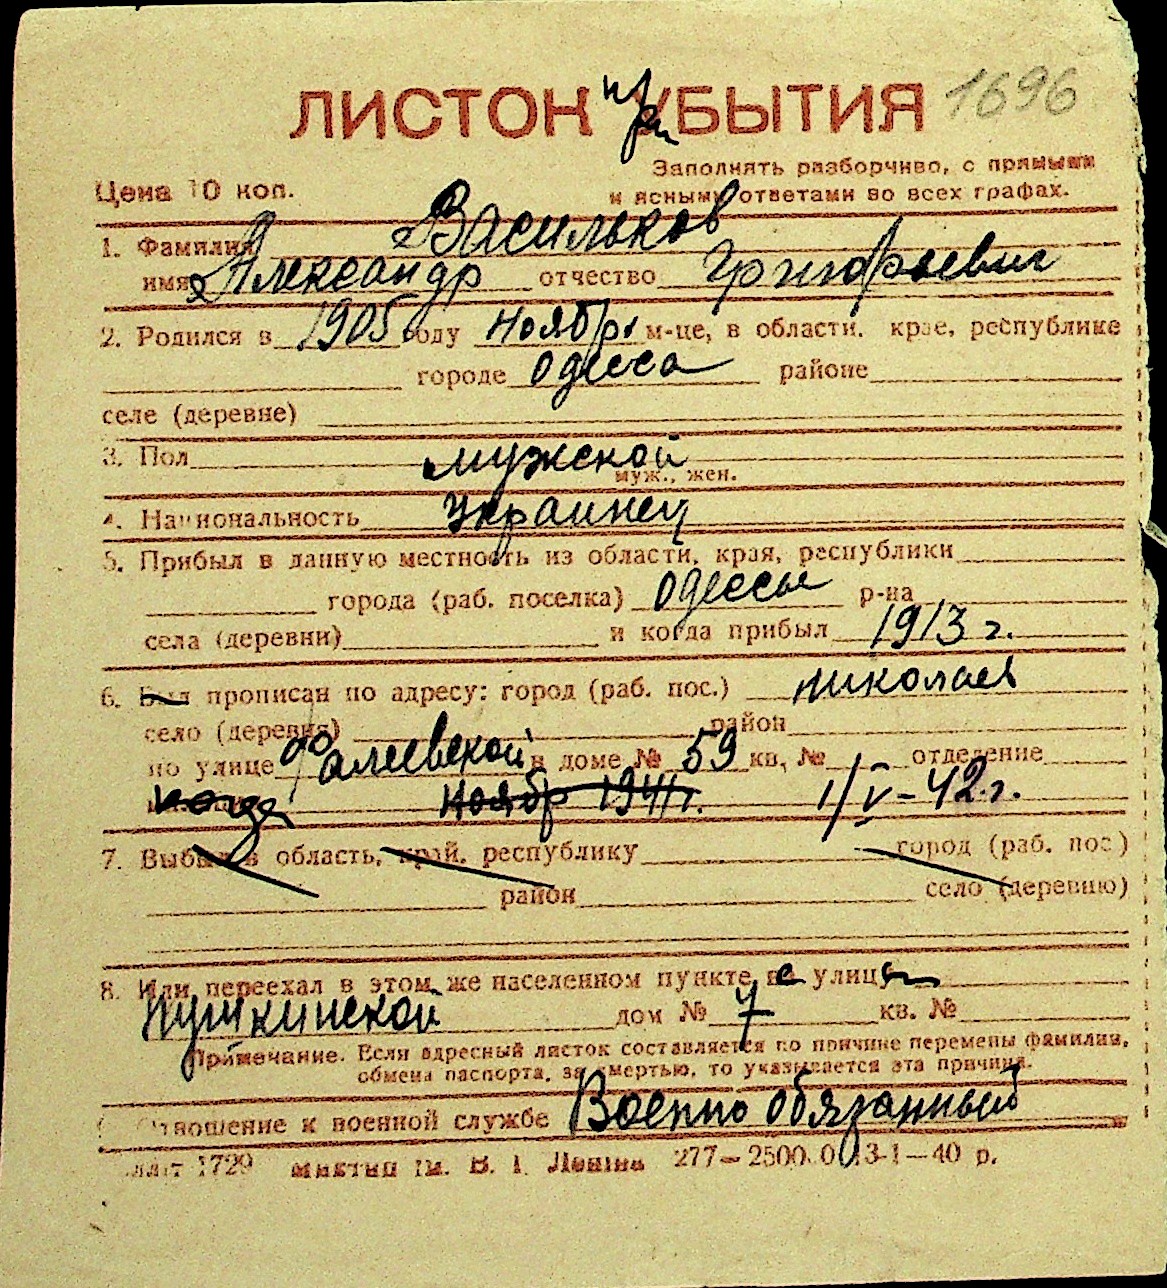 ЛИСТОК при УБЫТИЯ 1696
Заполнять разборчиво, с прямыми
Цена 10 коп. и ясными ответами во всех графах.
1. Фамилия Васильков
имя Александр отчество Григорьевич
2. Родился в 1905 году ноябр. м-це, в области, крае, республике
городе Одесса районе
селе (деревне)
3. Пол мужской
муж., жен.
4. Национальность Украинец
5. Прибыл в данную местность из области, края, республики
города (раб. поселка) Одессы р-на
села (деревни) и когда прибыл 1913 г.
6. Был прописан по адресу: город (раб. пос.) Николаев
село (деревня) район
по улице Фалеевской в доме № 59 кв. № отделение
когда ноябр 1941 г. 1/V-42 г.
7. Выбыл в область, край, республику город (раб. пос.)
район село (деревню)
8. Или переехал в этом же населенном пункте на улицу
Пушкинской дом № 7 кв. №
Примечание. Если адресный листок составляется по причине перемены фамилии,
обмена паспорта, за смертью, то указывается эта причина.
Отношение к военной службе Военно обязанный
1729 им. В. І. Леніна 277—2500. 0 13-1—40 р.